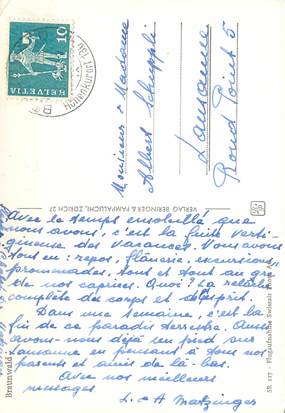 10
HELVETIA
Höhenkurort
Monsieur & Madame
Albert Schuppli
Lausanne
Rond Point 5
VERLAG BERINGER & PAMPALUCHI, ZÜRICH 27
Avec le temps ensoleillé que
nous avons, c'est la fuite verti-
gineuse des vacances. Nous avons
tout eu: repos, flânerie, excursions,
promenades, tout et tout au gré
de nos caprices. Quoi? La relâche
complète du corps et de l'esprit.
Dans une semaine, c'est la
fin de ce paradis terrestre. Aussi
avons-nous déjà un pied sur
Lausanne en pensant à tous nos
parents et amis de là-bas.
Avec nos meilleurs
messages
L. & A. Matzinger
Braunwald
SR 217 - Flugaufnahme Swissair